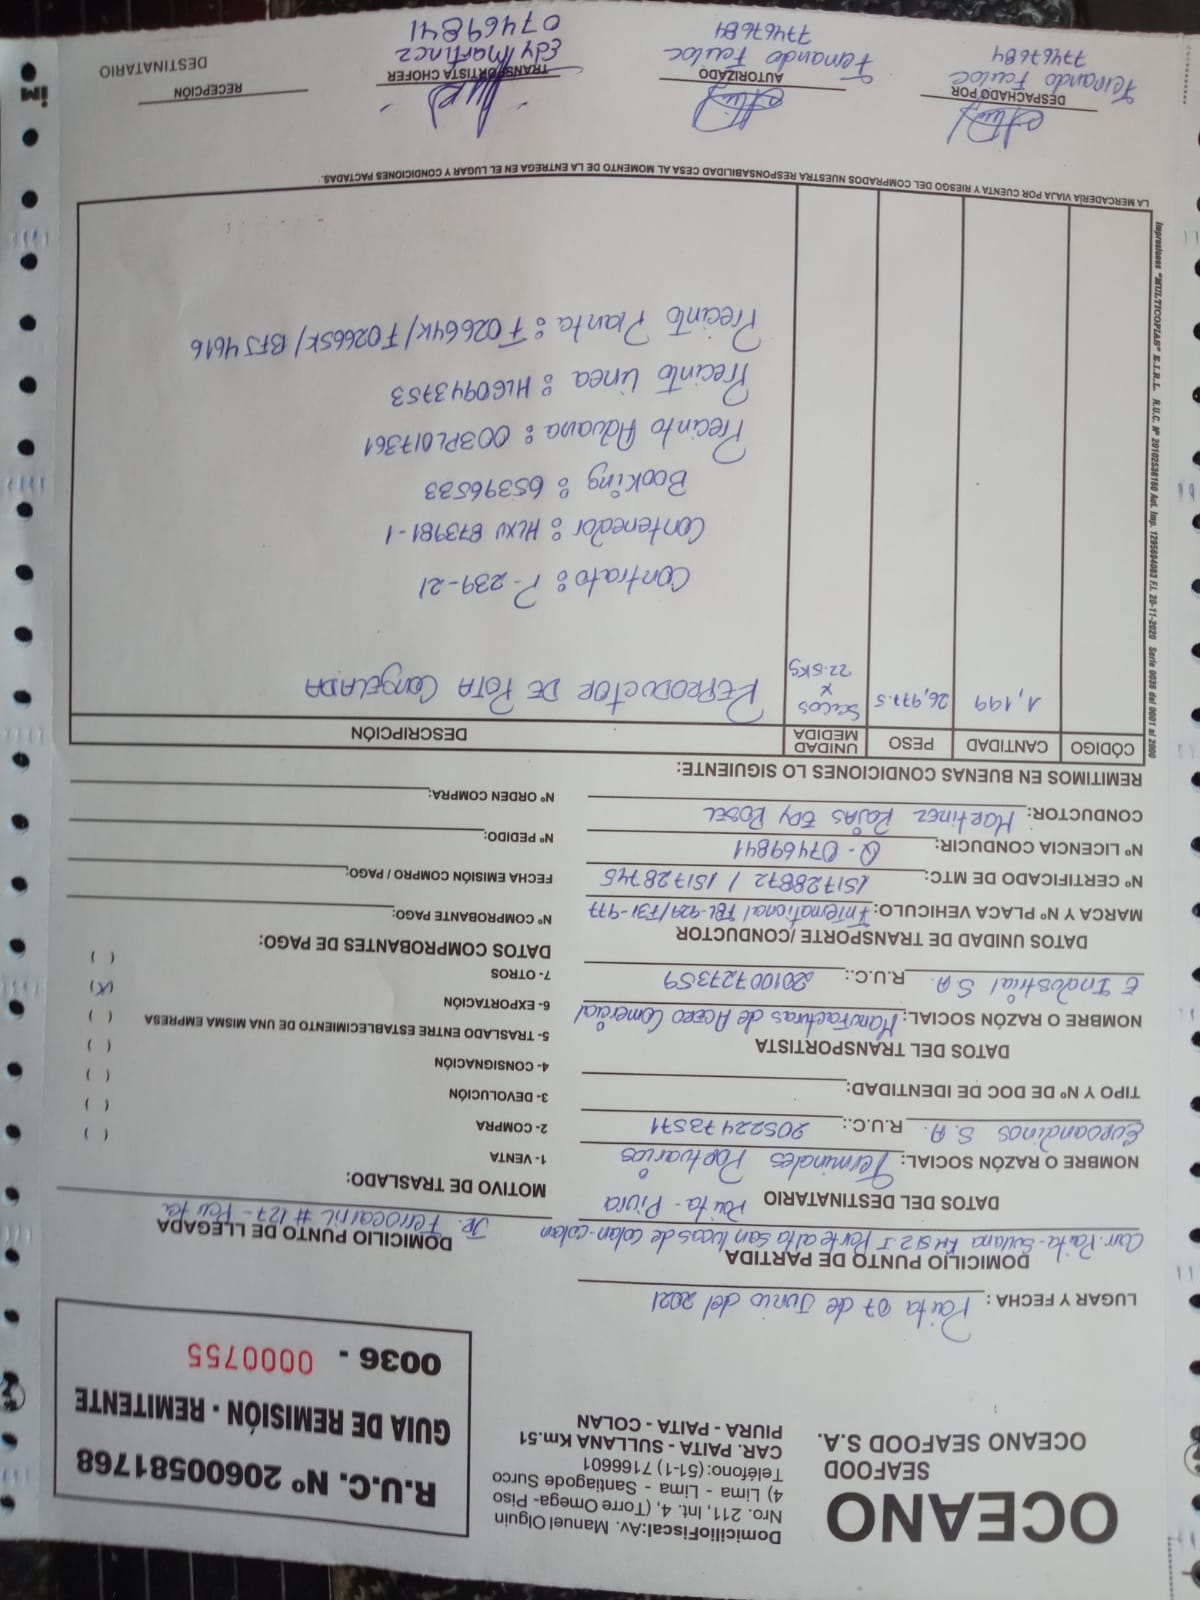 OCEANO
SEAFOOD
OCEANO SEAFOOD S.A.
DomicilioFiscal:Av. Manuel Olguin
Nro. 211, Int. 4, (Torre Omega- Piso
4) Lima - Lima - Santiagode Surco
Teléfono: (51-1) 7166601
CAR. PAITA - SULLANA Km.51
PIURA - PAITA - COLAN
R.U.C. Nº 20600581768
GUIA DE REMISIÓN - REMITENTE
0036 - 0000755
LUGAR Y FECHA: Paita 07 de Junio del 2021
DOMICILIO PUNTO DE PARTIDA
Carr. Paita-Sullana KM 512 I Parte alta San Lucas de Colan-Colan
Paita - Piura
DOMICILIO PUNTO DE LLEGADA
JR. Ferrocarril # 127 - Paita
DATOS DEL DESTINATARIO
NOMBRE O RAZÓN SOCIAL: Terminales Portuarios
Euroandinos S.A. R.U.C.: 20522473571
TIPO Y Nº DE DOC DE IDENTIDAD:
DATOS DEL TRANSPORTISTA
NOMBRE O RAZÓN SOCIAL: Manufacturas de Acero Comercial
E Industrial S.A. R.U.C.: 20100727359
DATOS UNIDAD DE TRANSPORTE /CONDUCTOR
MARCA Y Nº PLACA VEHICULO: International TBL-929/T31-977
Nº CERTIFICADO DE MTC: 151728872 / 151728745
Nº LICENCIA CONDUCIR: Q-07469841
CONDUCTOR: Martinez Rojas Edy Rosel
MOTIVO DE TRASLADO:
1- VENTA ( )
2- COMPRA ( )
3- DEVOLUCIÓN ( )
4- CONSIGNACIÓN ( )
5- TRASLADO ENTRE ESTABLECIMIENTO DE UNA MISMA EMPRESA ( )
6- EXPORTACIÓN (X)
7- OTROS ( )
DATOS COMPROBANTES DE PAGO:
Nº COMPROBANTE PAGO:
FECHA EMISIÓN COMPRO / PAGO:
Nº PEDIDO:
Nº ORDEN COMPRA:
REMITIMOS EN BUENAS CONDICIONES LO SIGUIENTE:
CÓDIGO CANTIDAD PESO UNIDAD MEDIDA DESCRIPCIÓN
1,199 26,977.5 Sacos x 22.5Kg REPRODUCTOR DE POTA CONGELADA
Contrato: P-239-21
Contenedor: HLXU 873981-1
Booking: 65396533
Precinto Aduana: 003PL017361
Precinto Linea: HLG0943753
Precinto Planta: F02664K/F02665K/BFJ4616
Impresiones "MULTICOPIAS" E.I.R.L. R.U.C. Nº 20102536160 Aut. Imp. 1295694083 F.I. 20-11-2020 Serie 0036 del 0001 al 2000
LA MERCADERÍA VIAJA POR CUENTA Y RIESGO DEL COMPRADOS NUESTRA RESPONSABILIDAD CESA AL MOMENTO DE LA ENTREGA EN EL LUGAR Y CONDICIONES PACTADAS.
DESPACHADO POR
Fernando
77467684
AUTORIZADO
Fernando
77467684
TRANSPORTISTA CHOFER
Edy Martinez
07469841
RECEPCIÓN
DESTINATARIO
im